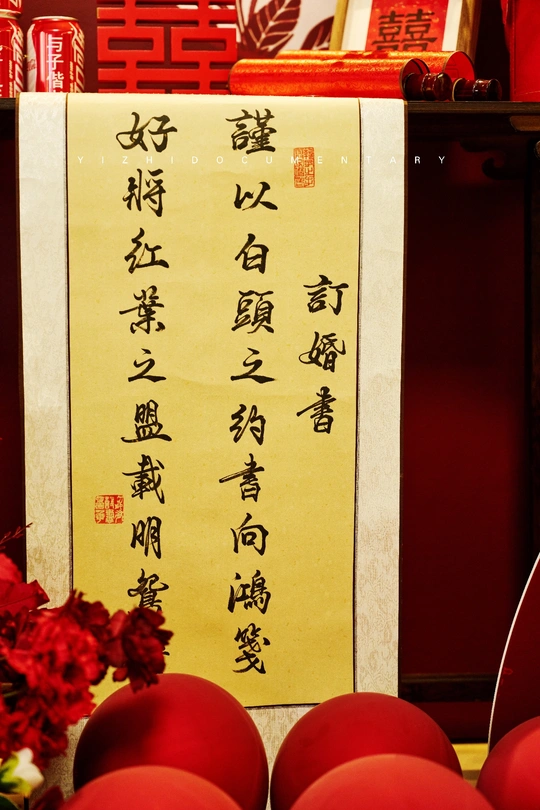 訂婚書
謹以白頭之約書向鴻箋
好將红葉之盟載明鴛
囍
囍
与子偕
YIZHIDOCUMENTARY